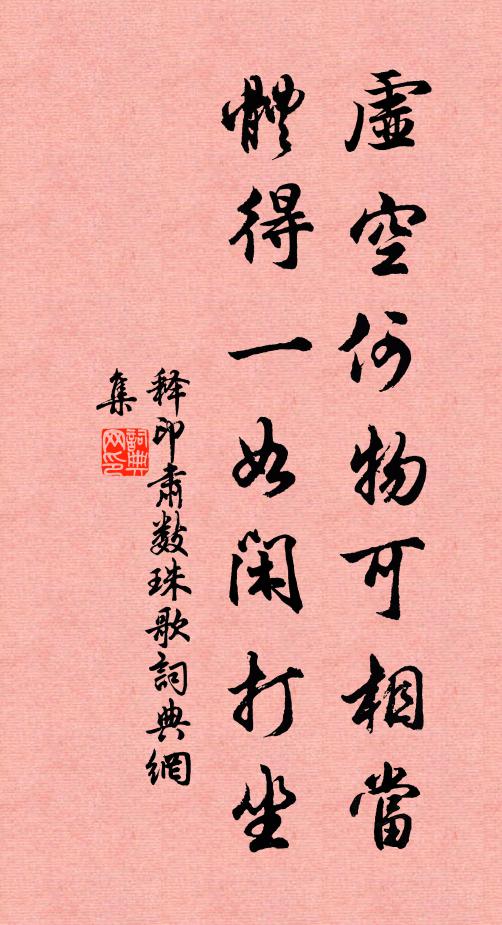 虛空何物可相當
體得一如閑打坐
释印肅數珠歌詞典網
集
詞典网印